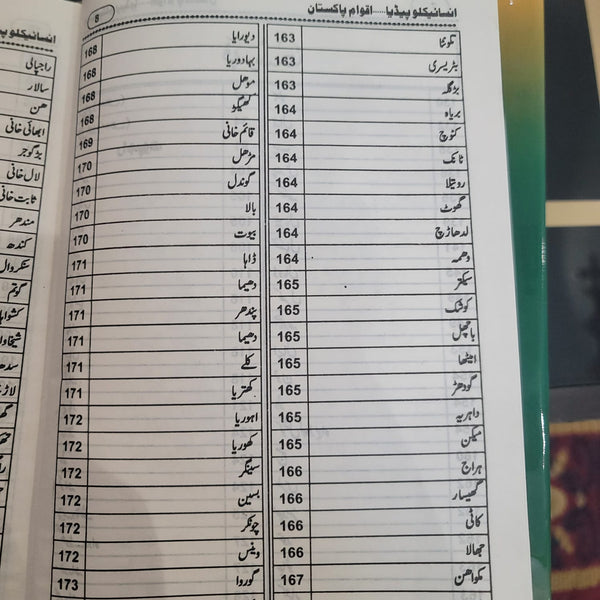 انسائیکلو پیڈیا.....اقوام پاکستان
8
نکوئنا 163
بٹریسری 163
بڑگلہ 163
بریاہ 164
کنوچ 164
ٹانک 164
روتیلا 164
گھوٹ 164
لدھاڑچ 164
دھمہ 164
سیکنر 165
کوشک 165
باچھل 165
امیٹھا 165
گودھڑ 165
داہریہ 165
میکن 165
ہراج 166
گھیسار 166
کاٹی 166
جھالا 166
مکواھن 167
دیورایا 168
بہادوریا 168
موھل 168
گھیگو 168
قائم خانی 169
مڑھل 170
گوندل 170
بالا 170
بیوت 170
ڈاہا 171
دھیما 171
پندھر 171
دھیما 171
کلے 171
کھتریا 171
اہوریا 172
کھوریا 172
سینگر 172
بسین 172
چونکر 172
وینس 172
گوروا 173
انسائیکلو پیڈ
راجپالی
سالار
ھن
ابھائی خانی
بڈگوجر
لال خانی
ثابت خانی
مندھر
کندھ
سنکروال
گوتم
کشواہا
شیخاوا
سدھ
لاڑ